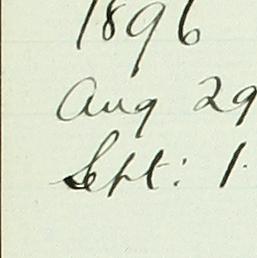 1896
Aug 29
Sept: 1.